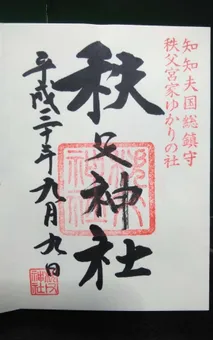 知知夫国総鎮守
秩父宮家ゆかりの社
秩父神社
平成二十年九月九日